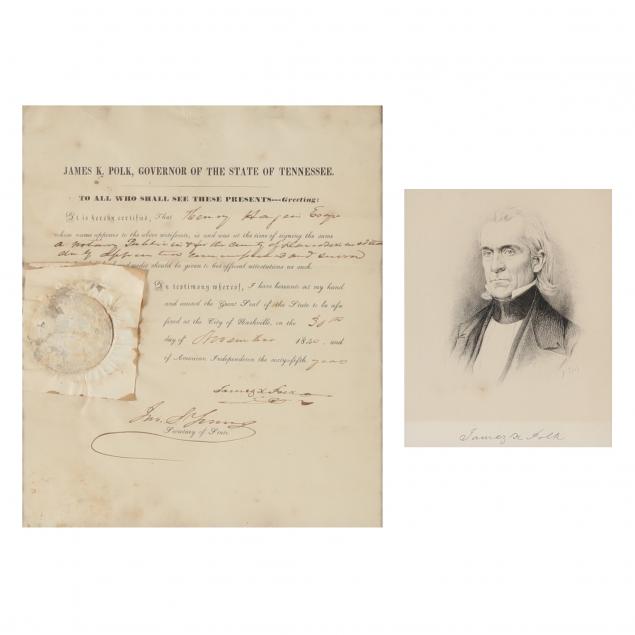 JAMES K. POLK, GOVERNOR OF THE STATE OF TENNESSEE.
TO ALL WHO SHALL SEE THESE PRESENTS----Greeting:
It is hereby certified, That Henry Hagan Esqr
whose name appears to the above certificate, is and was at the time of signing the same
a Notary Public in & for the County of Davidson
duly appointed commissioned and sworn
and credit should be given to his official attestations as such.
In testimony whereof, I have hereunto set my hand
and caused the Great Seal of the State to be af-
fixed at the City of Nashville, on the 30th
day of November 1840 and
of American Independence the sixty-fifth year
James K. Polk
Jno. S. Young
Secretary of State.
James K Polk